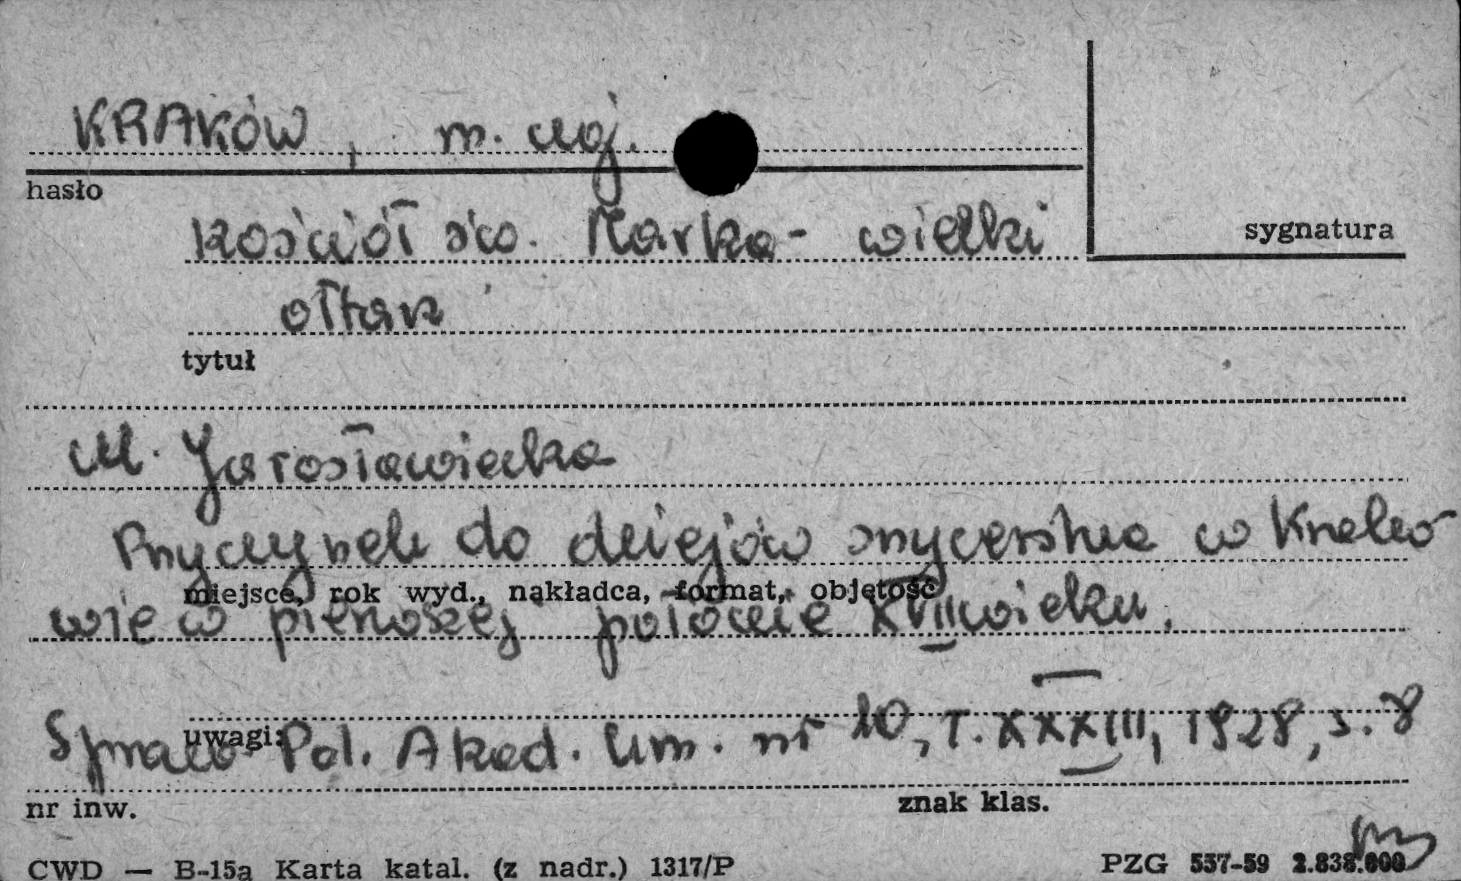 KRAKÓW, m. woj.
hasło
Kościół św. Marka - wielki
sygnatura
ołtarz
tytuł
M. Jarosławiecka
Przyczynek do dziejów snycerstwa w Krako-
miejsce, rok wyd., nakładca, format, objętość
wie w pierwszej połowie XVII wieku.
Sprawo Pol. Akad. Um. nr 10, T. XXXIII, 1928, s. 8
uwagi:
nr inw.
znak klas.
CWD — B-15a Karta katal. (z nadr.) 1317/P
PZG 557-59 2.838.000